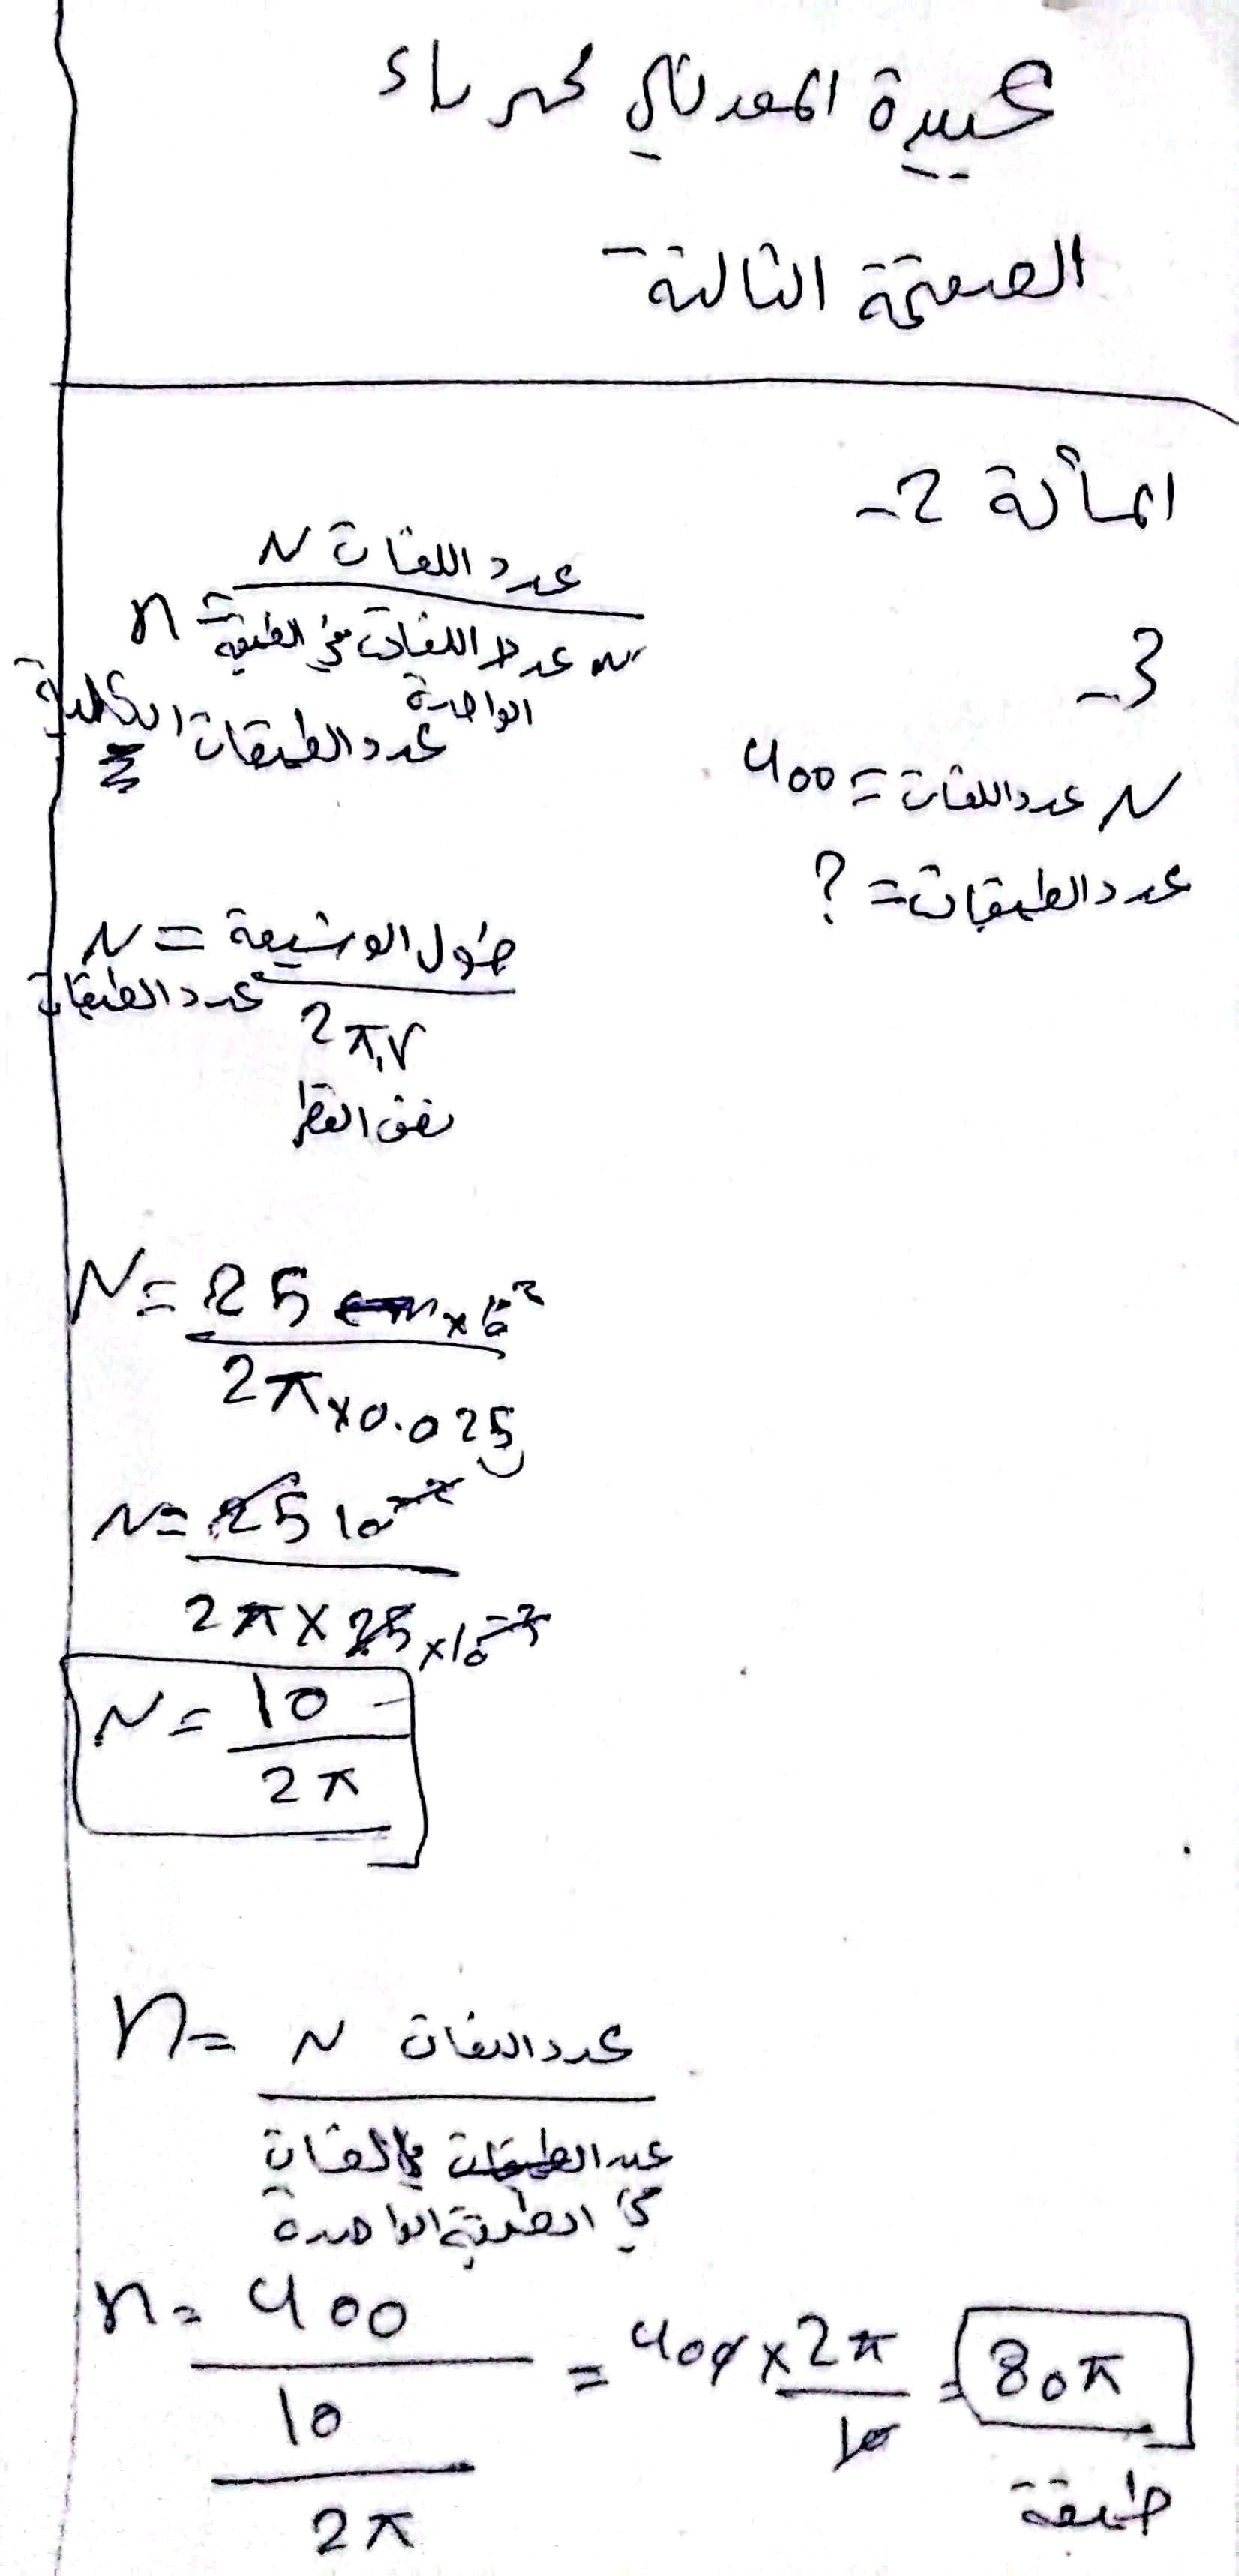 عبيدة المعدني كهرباء
الصفحة الثالثة
المسألة 2-
3-
N عدد اللفات = 400
عدد الطبقات = ?
n = عدد اللفات N
عدد اللفات في الطبقة
الواحدة
عدد الطبقات الكلية
N = طول الوشيعة
عدد الطبقات
2πr
نصف القطر
N = 25 cm × 10⁻²
2π × 0.025
N = 25 10⁻²
2π × 25 × 10⁻³
N = 10
2π
n = عدد اللفات N
عدد الطبقات اللفات
في الطبقة الواحدة
n = 400 = 400 × 2π = 80π
10 10
2π طبقة